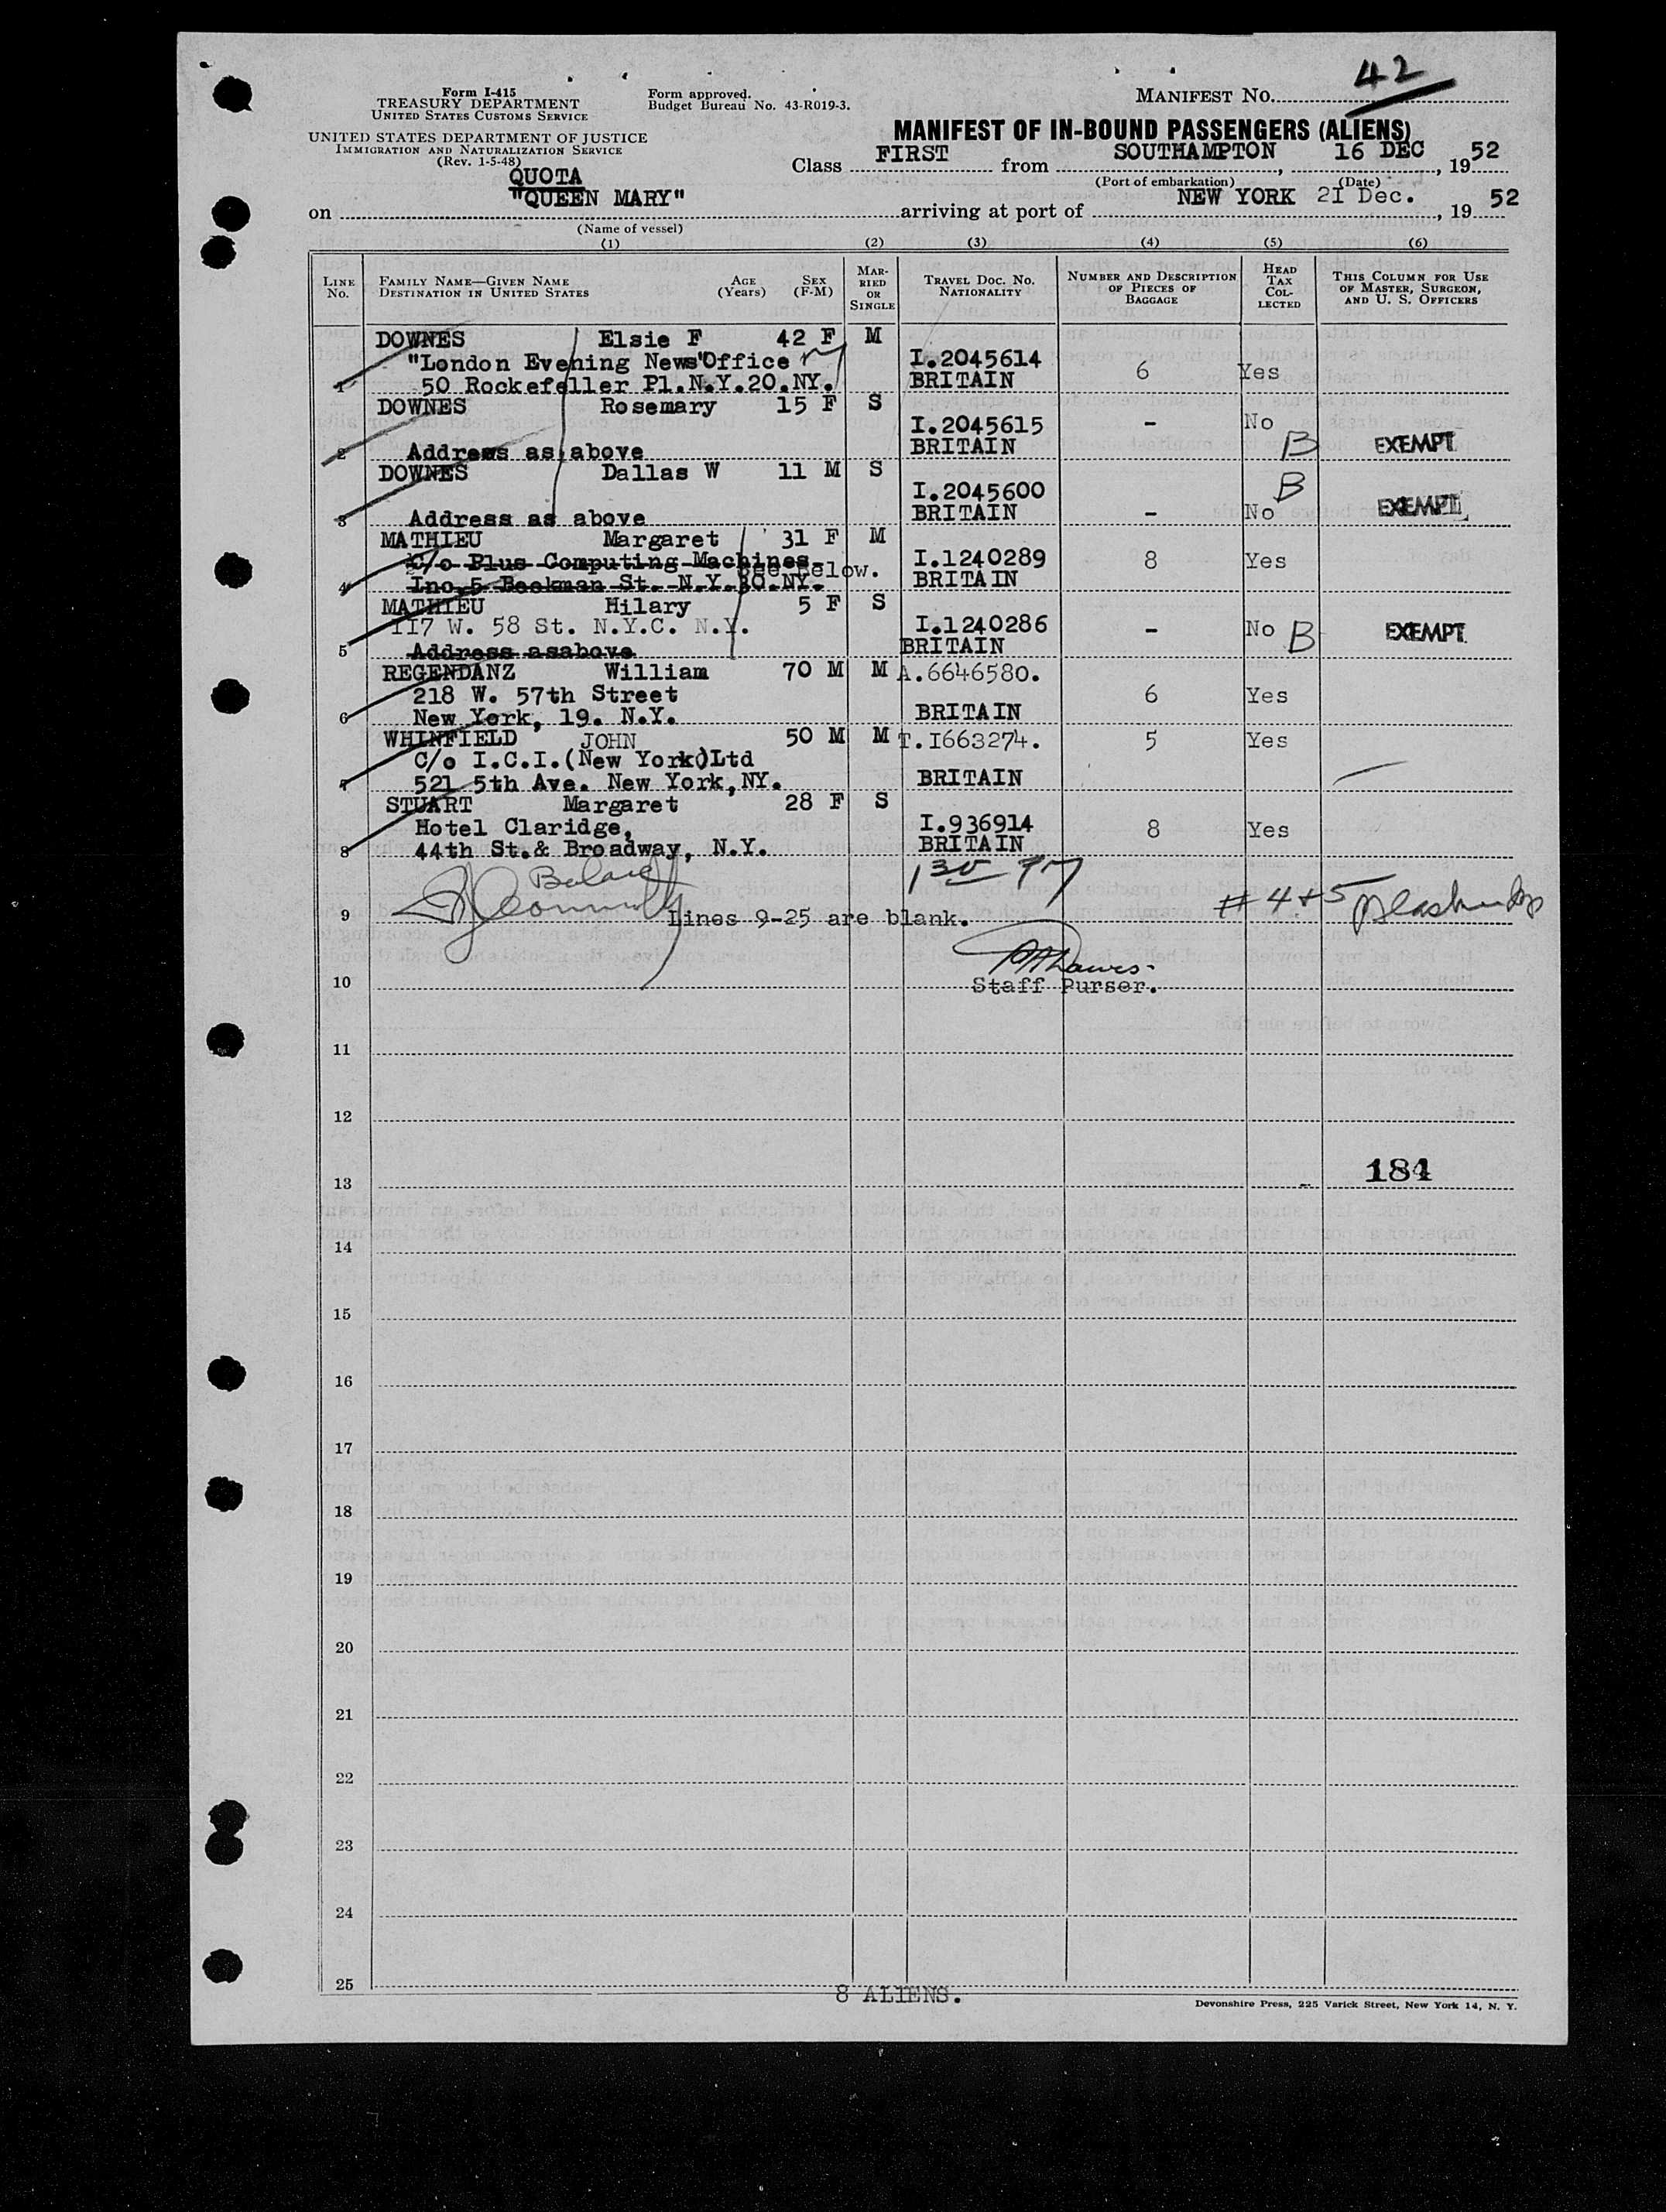 42
Form I-415
TREASURY DEPARTMENT
UNITED STATES CUSTOMS SERVICE
UNITED STATES DEPARTMENT OF JUSTICE
IMMIGRATION AND NATURALIZATION SERVICE
(Rev. 1-5-48)
Form approved.
Budget Bureau No. 43-R019-3.
MANIFEST NO.
MANIFEST OF IN-BOUND PASSENGERS (ALIENS)
Class FIRST from SOUTHAMPTON, 16 DEC, 1952
(Port of embarkation) (Date)
QUOTA
on "QUEEN MARY" arriving at port of NEW YORK 21 Dec., 1952
(Name of vessel)
(1) (2) (3) (4) (5) (6)
LINE NO.
FAMILY NAME—GIVEN NAME
DESTINATION IN UNITED STATES
AGE (Years)
SEX (F-M)
MARRIED OR SINGLE
TRAVEL DOC. NO.
NATIONALITY
NUMBER AND DESCRIPTION OF PIECES OF BAGGAGE
HEAD TAX COLLECTED
THIS COLUMN FOR USE OF MASTER, SURGEON, AND U. S. OFFICERS
DOWNES Elsie F 42 F M
"London Evening News"Office I.2045614
1 50 Rockefeller Pl.N.Y.20.NY. BRITAIN 6 Yes
DOWNES Rosemary 15 F S
I.2045615 - No
2 Address as above BRITAIN B EXEMPT
DOWNES Dallas W 11 M S
I.2045600 B EXEMPT
3 Address as above BRITAIN - No
MATHIEU Margaret 31 F M
C/o Plus Computing Machines I.1240289 8 Yes
See Below.
4 Inc.5 Beekman St. N.Y.30.NY. BRITAIN
MATHIEU Hilary 5 F S
117 W. 58 St. N.Y.C. N.Y. I.1240286 - No B EXEMPT
5 Address asabove BRITAIN
REGENDANZ William 70 M M A.6646580.
218 W. 57th Street 6 Yes
6 New York, 19. N.Y. BRITAIN
WHINFIELD JOHN 50 M M T.1663274. 5 Yes
C/o I.C.I.(New York)Ltd
7 521 5th Ave. New York,NY. BRITAIN
STUART Margaret 28 F S
Hotel Claridge, I.936914 8 Yes
8 44th St.& Broadway, N.Y. BRITAIN
9 Lines 9-25 are blank. # 4 + 5
10 Staff Purser.
11
12
13 184
14
15
16
17
18
19
20
21
22
23
24
25
8 ALIENS.
Devonshire Press, 225 Varick Street, New York 14, N. Y.